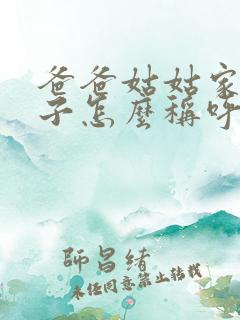 爸爸姑姑家
子怎麼稱呼
師昌緒
未經同意禁止轉載